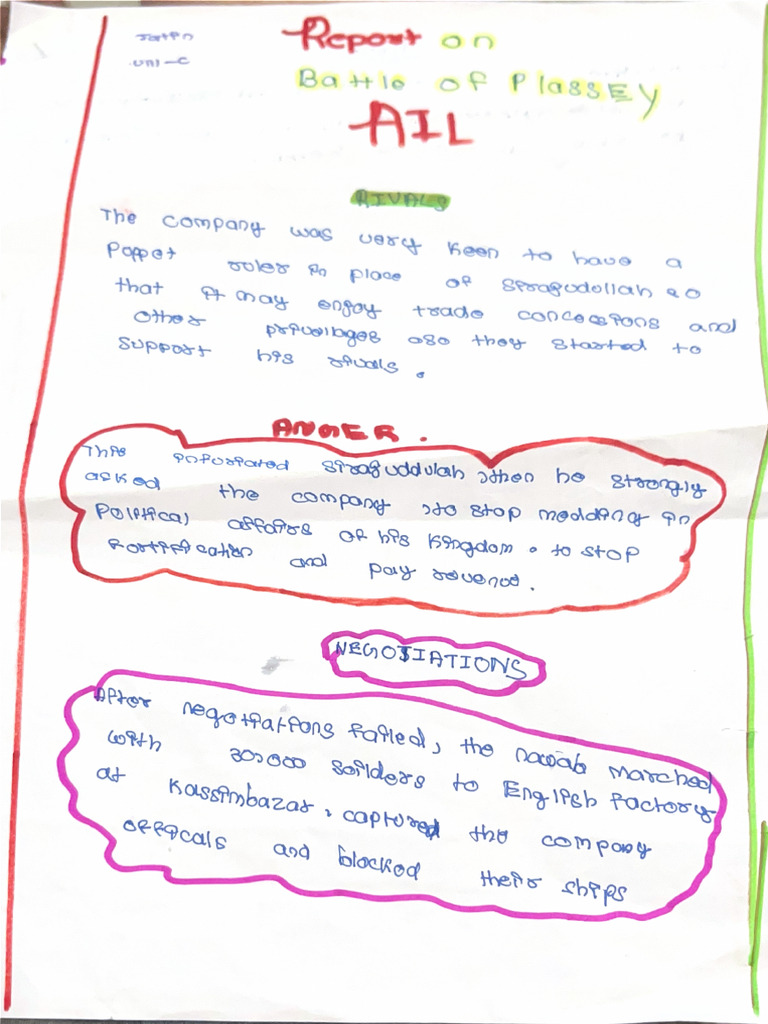 Jatin
VIII-C
Report on
Battle of PlassEY
AIL
RIVALS
The company was very keen to have a
Poppet ruler in place of Sirajudollah so
that it may enjoy trade concessions and
other privellages also they started to
support his rivals.
ANGER.
This infuriated sirajuddulah, then he strongly
asked the company, to stop medding in
Political affairs of his Kingdom. to stop
Fortification and pay revenue.
NEGOTIATIONS
After negotiations failed, the nawab marched
with 30,000 soilders to English factory
at Kassimbazar, captured the company
officals and blocked their ships